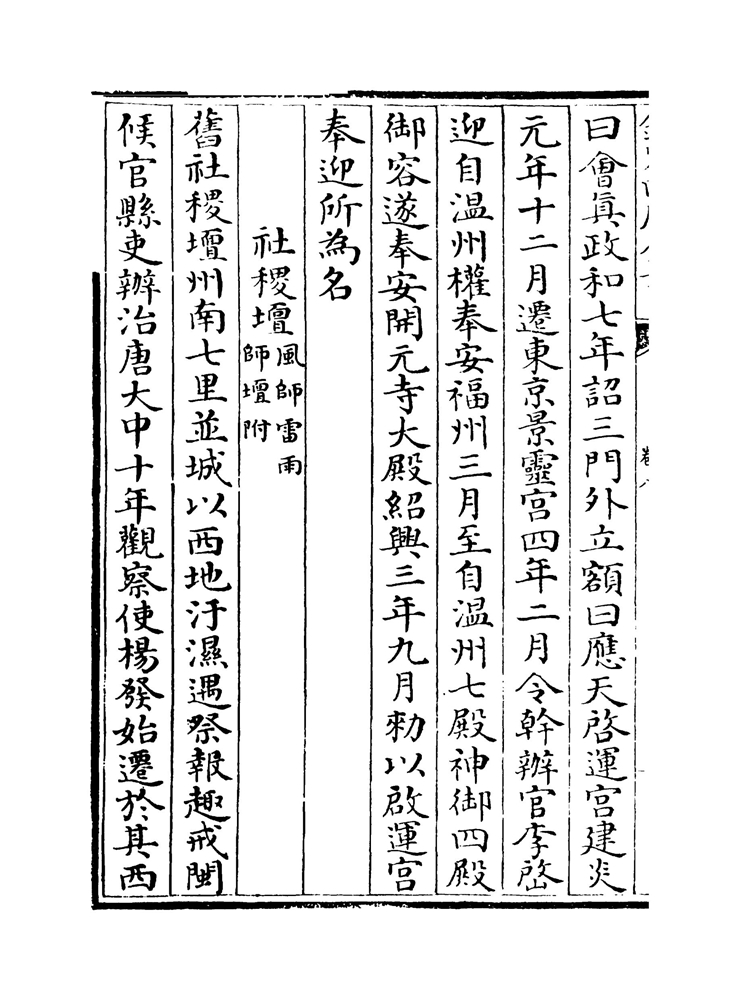 曰會真政和七年詔三門外立額曰應天啓運宫建炎
元年十二月遷東京景靈宫四年二月令幹辦官李啓
迎自温州權奉安福州三月至自温州七殿神御四殿
御容遂奉安開元寺大殿紹興三年九月勑以啟運宫
奉迎所為名
社稷壇風師雷雨
師壇附
舊社稷壇州南七里並城以西地汙濕遇祭報趣戒閩
候官縣吏辦治唐大中十年觀察使楊發始遷於其西